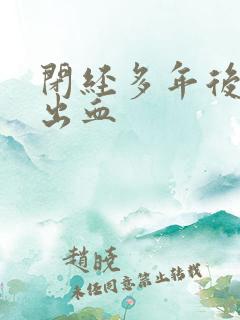 閉經多年後
出血
趙曉
未任同意禁止轉載